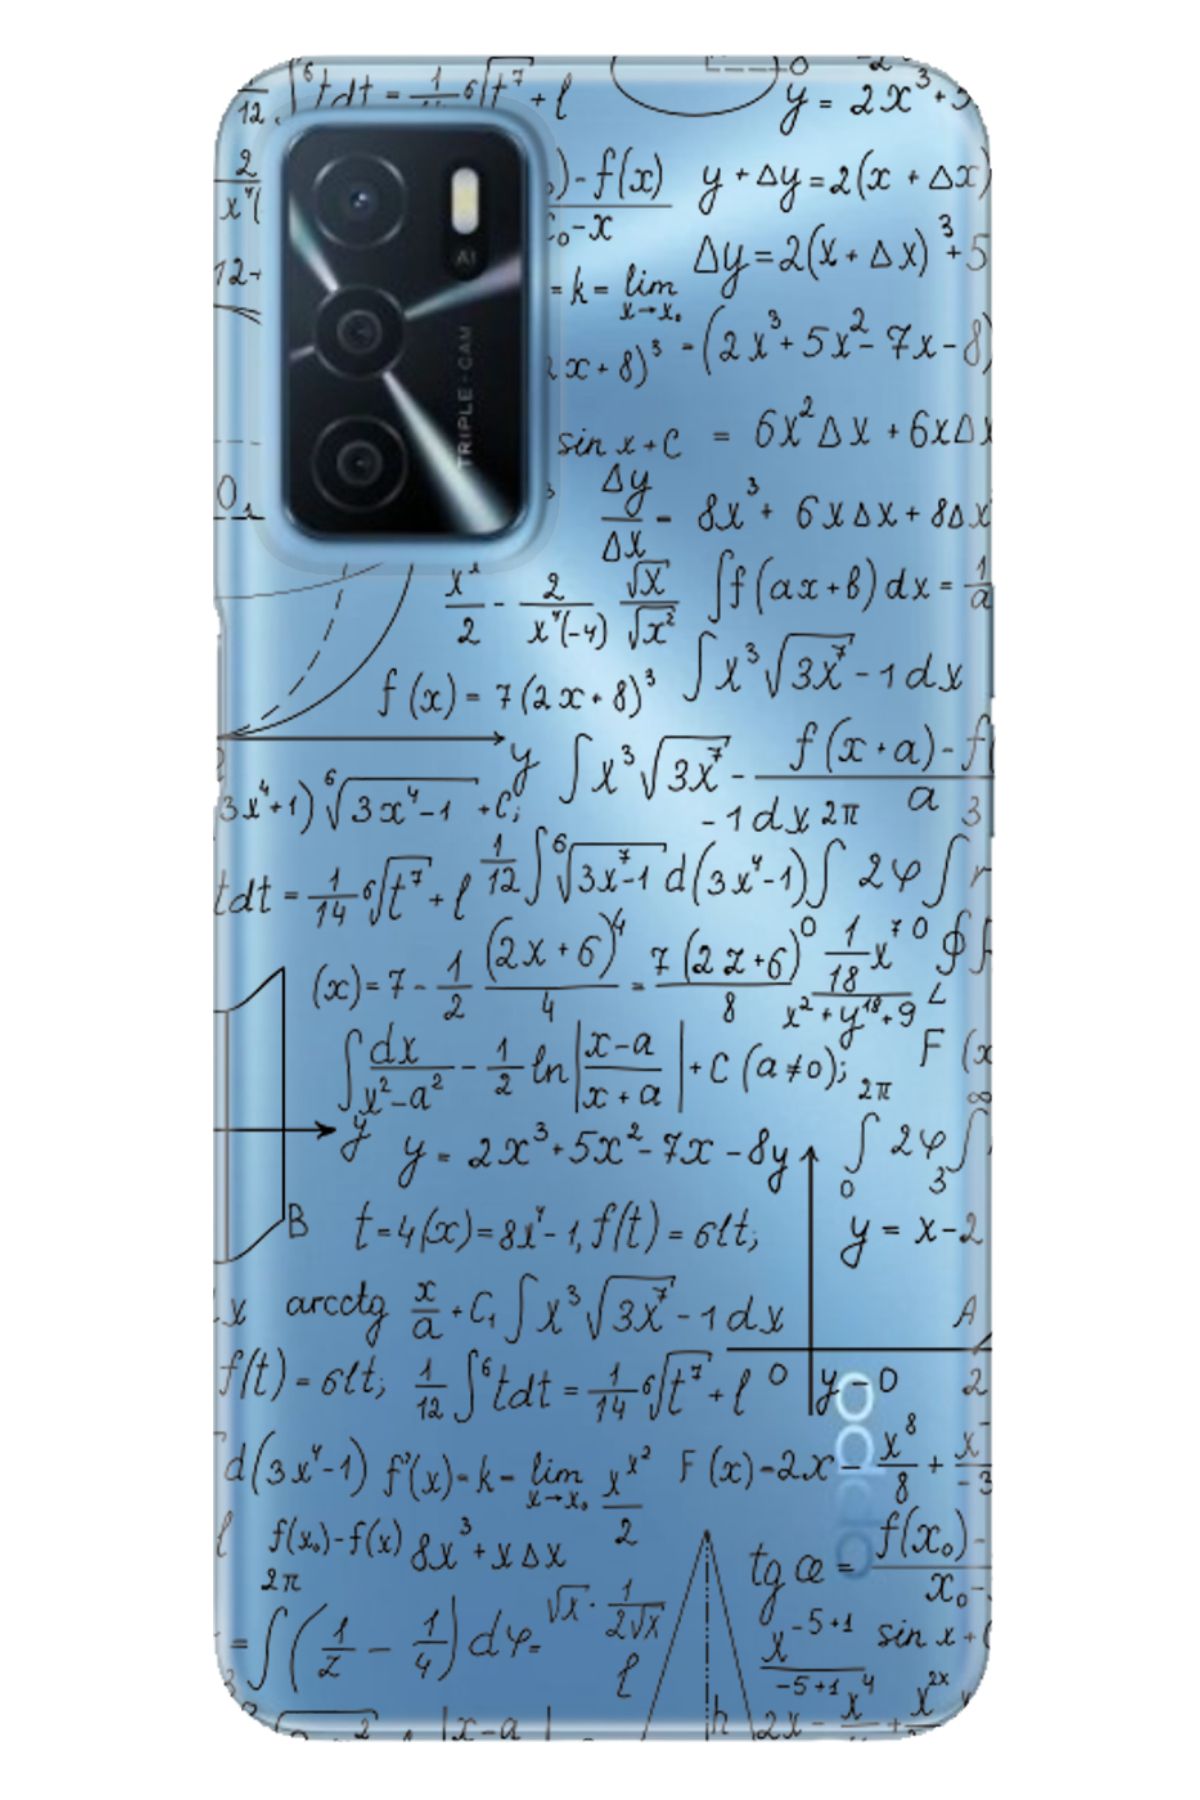 12
∫⁶tdt = 1/ ⁶√t⁷ + l
0
y = 2x³+5
2
x⁴(
) - f(x)
x₀ - x
y + Δy = 2(x + Δx)
12+
= k = lim
x→x₀
Δy = 2(x + Δx)³ + 5
AI
TRIPLE - CAM
2x + 8)³
- (2x³ + 5x² - 7x - 8)
sin x + C = 6x²Δx + 6xΔx
Δy/Δx - 8x³ + 6xΔx + 8Δx
x²/2 - 2/x⁴(-4) √x/√x²
∫f(ax+b)dx = 1/a
f(x) = 7(2x + 8)³
∫x³√3x⁷ - 1dx
y ∫x³√3x⁷ - f(x+a) - f(
-1dx 2π a 3
(3x⁴+1) ⁶√3x⁴-1 + C;
tdt = 1/14 ⁶√t⁷ + l
1/12 ∫⁶√3x⁷-1 d(3x⁴-1) ∫2φ∫r
(x) = 7 - 1/2 (2x+6)⁴/4 = 7(2z+6)⁰/8
1/18 x⁷⁰ ∮
x² + y¹⁸ + 9 ∠
∫dx/x²-a² - 1/2 ln|x-a/x+a| + C (a≠0);
F (x
y
y = 2x³ + 5x² - 7x - 8y
2π ∞
∫2φ∫
0 3
B
t = 4(x) = 8x⁴ - 1, f(t) = 6lt;
y = x-2
x arcctg x/a + C₁ ∫x³√3x⁷ - 1dx
A
f(t) = 6lt; 1/12 ∫⁶tdt = 1/14 ⁶√t⁷ + l
0 y - 0 2
oppo
d(3x⁴-1) f'(x) - k - lim x→x₀ xˣ²/2
F (x) - 2x - x⁸/8 + x⁻/-3
l f(x₀) - f(x) 8x³ + xΔx
tg œ = f(x₀) - / x₀ -
2π
= ∫(1/2 - 1/4)dφ = √x · 1/2√x
l
x⁻⁵⁺¹/-5+1 sin x + C
h
2x - x⁴ + x²ˣ
2
|x-a|